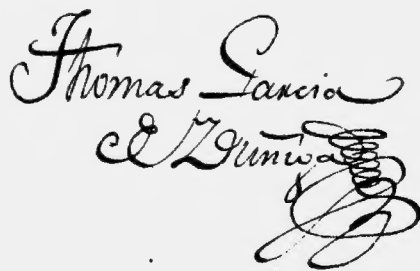 Thomas Garcia
d Zuniga